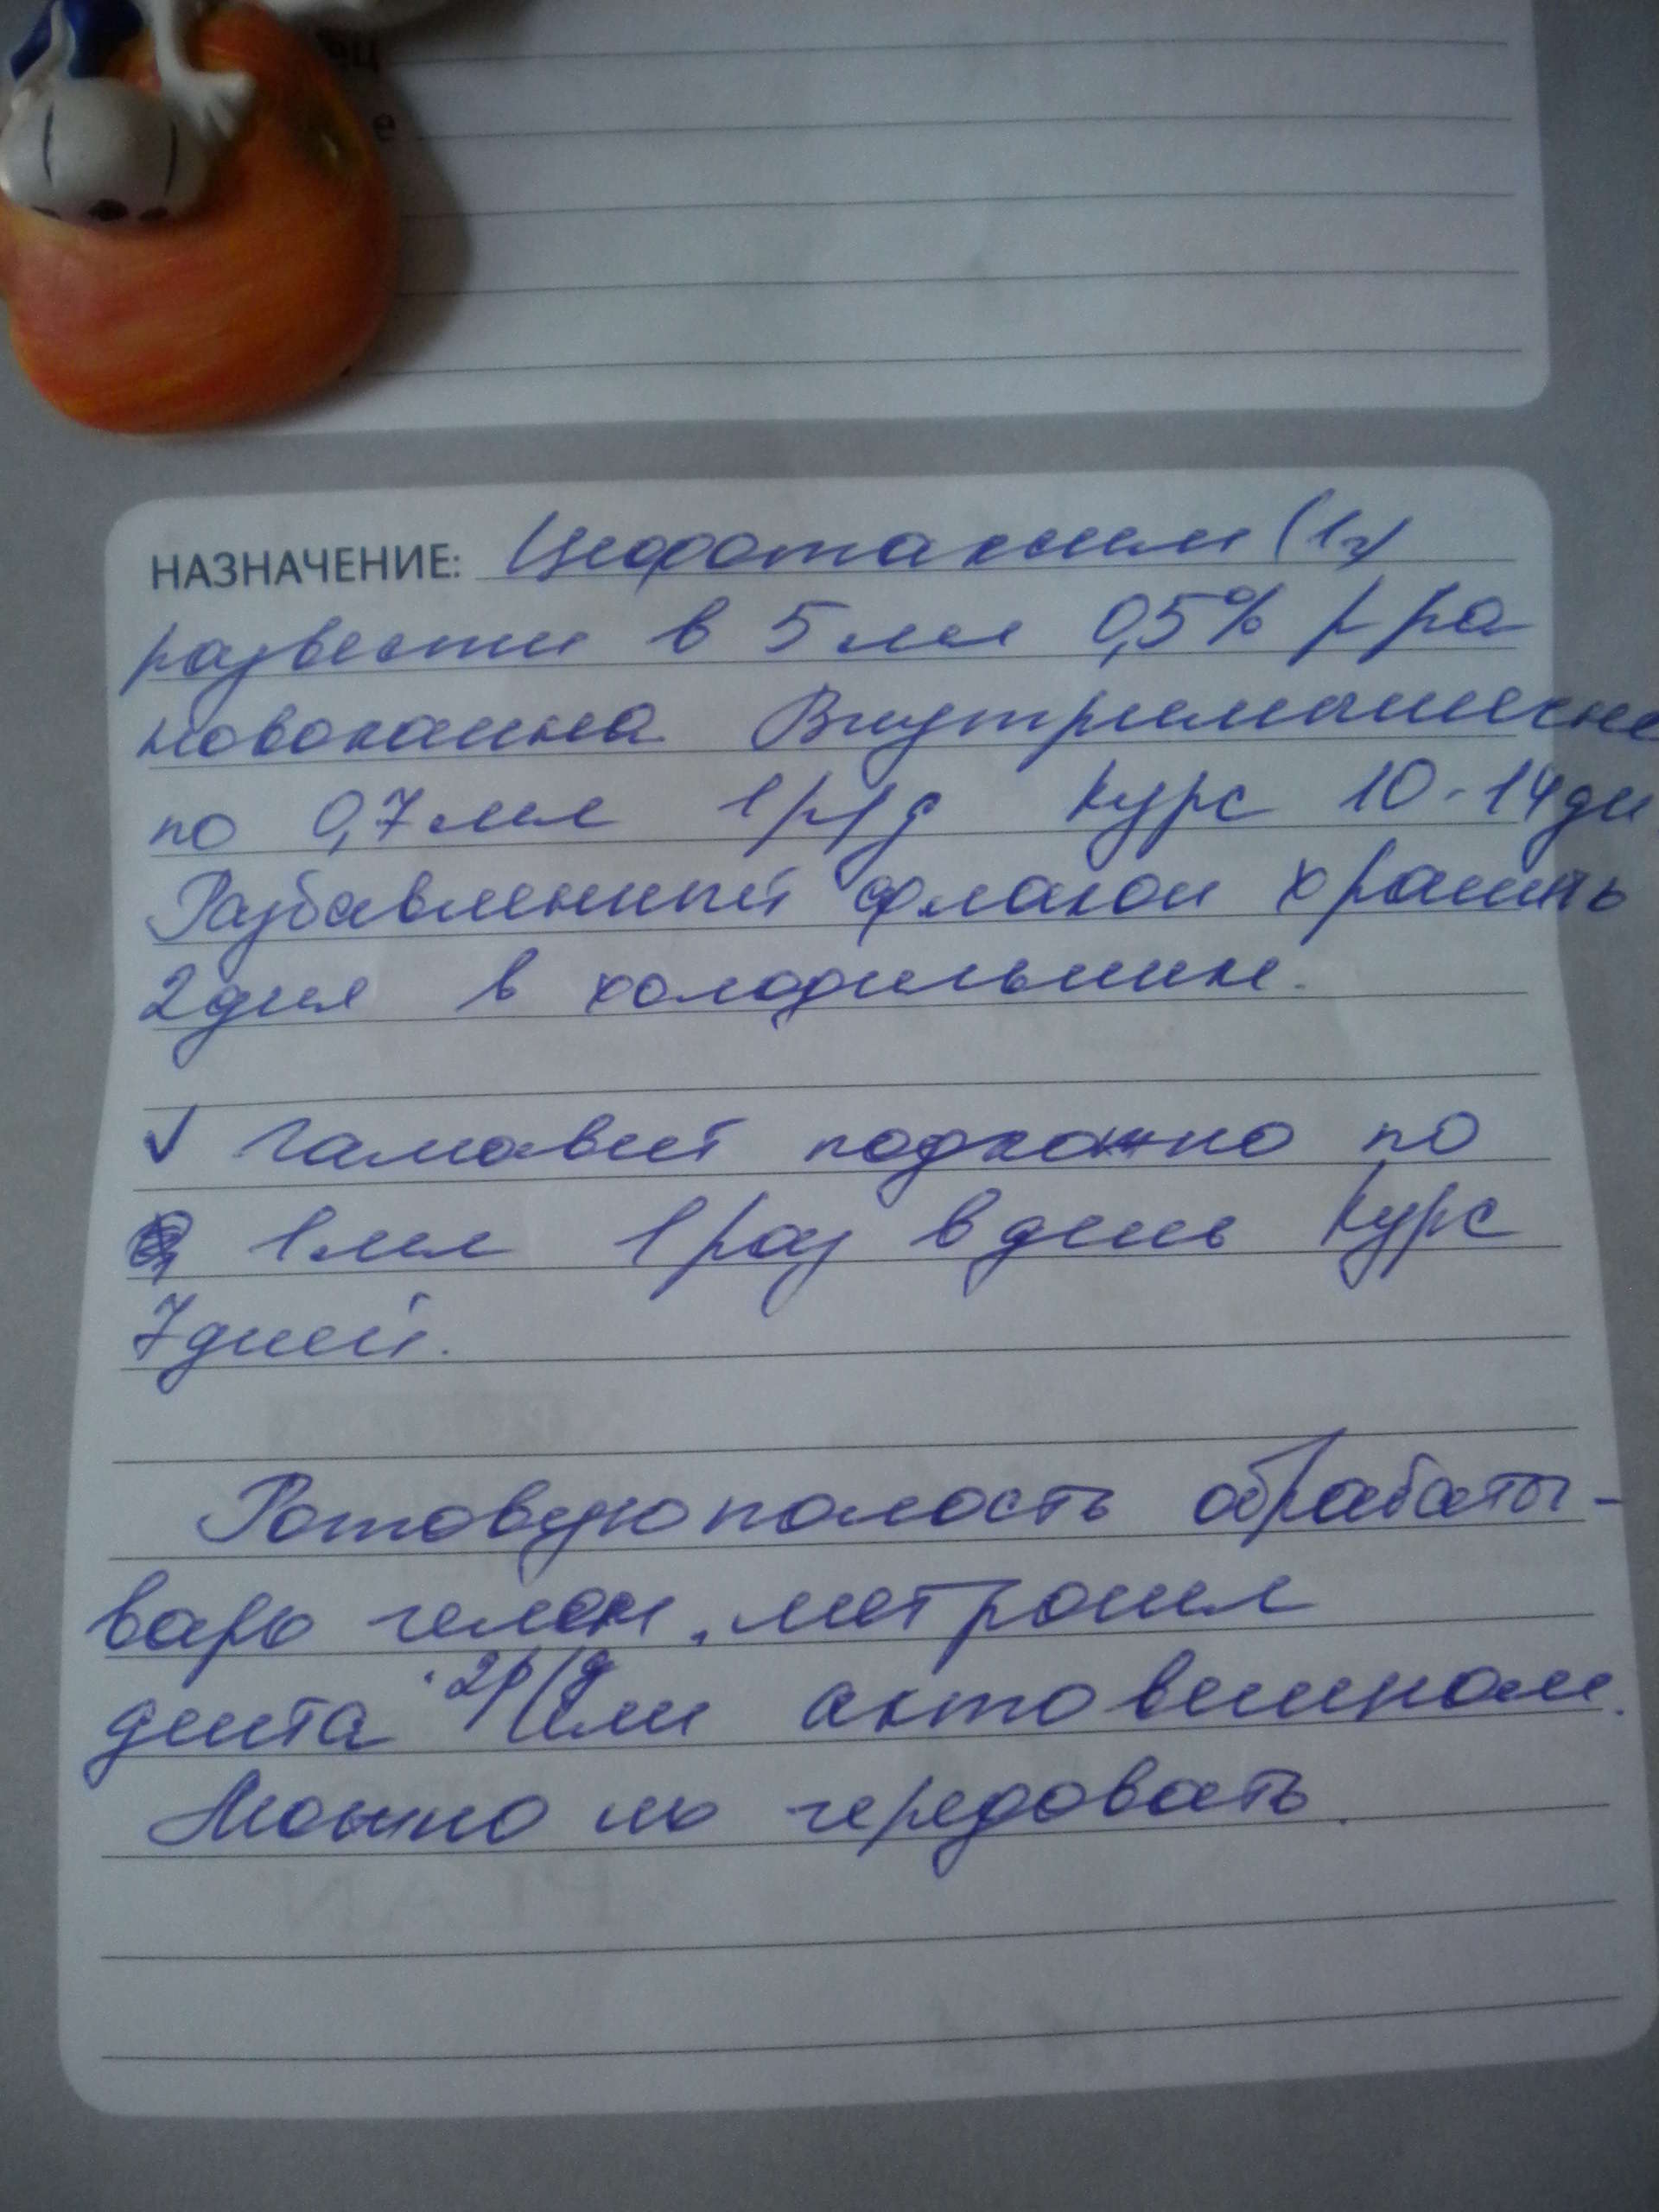 е
НАЗНАЧЕНИЕ: Цефотаксим (1г)
развести в 5 мл 0,5% р-ра
новокаина Внутримышечно
по 0,7 мл 1 р/д курс 10-14 дн
Разбавленный флакон хранить
2 дня в холодильнике.
√ Гамавит подкожно по
1 мл 1 раз в день курс
7 дней.
Ротовую полость обрабаты-
вать гелем метрогил
дента 2р/д Или актовегином.
Можно их чередовать.